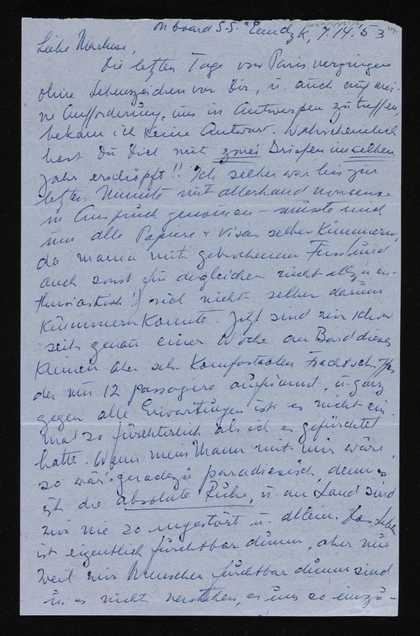 on board S.S. 7.14.53
Liebe
Die letzten Tage von Paris vergingen
ohne Lebenszeichen von Dir, u. auch auf mei-
ne Aufforderung, uns in Antwerpen zu treffen,
bekam ich keine Antwort. Wahrscheinlich
hast Du Dich mit zwei Briefen im selben
Jahr erschöpft!! Ich selber war bis zur
letzten Minute mit allerhand
in Anspruch genommen – musste mich
um alle Papiere + Visen selber kümmern,
da mama mit gebrochenem Fuss (und
auch sonst für dergleichen nicht allzu en-
thusiastisch!) sich nicht selber darum
kümmern konnte. Jetzt sind wir schon
seit genau einer Woche an Bord dieses
kleinen aber sehr komfortablen Frachtschiffes
der nur 12 passagere aufnimmt, u. ganz
gegen alle Erwartungen ist es nicht ein-
mal so fürchterlich als ich es gefürchtet
hatte. Wenn mein Mann mit mir wäre,
so wär's geradezu paradiesisch, denn es
ist die absolute Ruhe, u. am Land sind
wir nie so ungestört u. allein. Das Leben
ist eigentlich furchtbar dumm, aber nur
weil wir Menschen furchtbar dumm sind
u. es nicht verstehen, es uns so einzu-